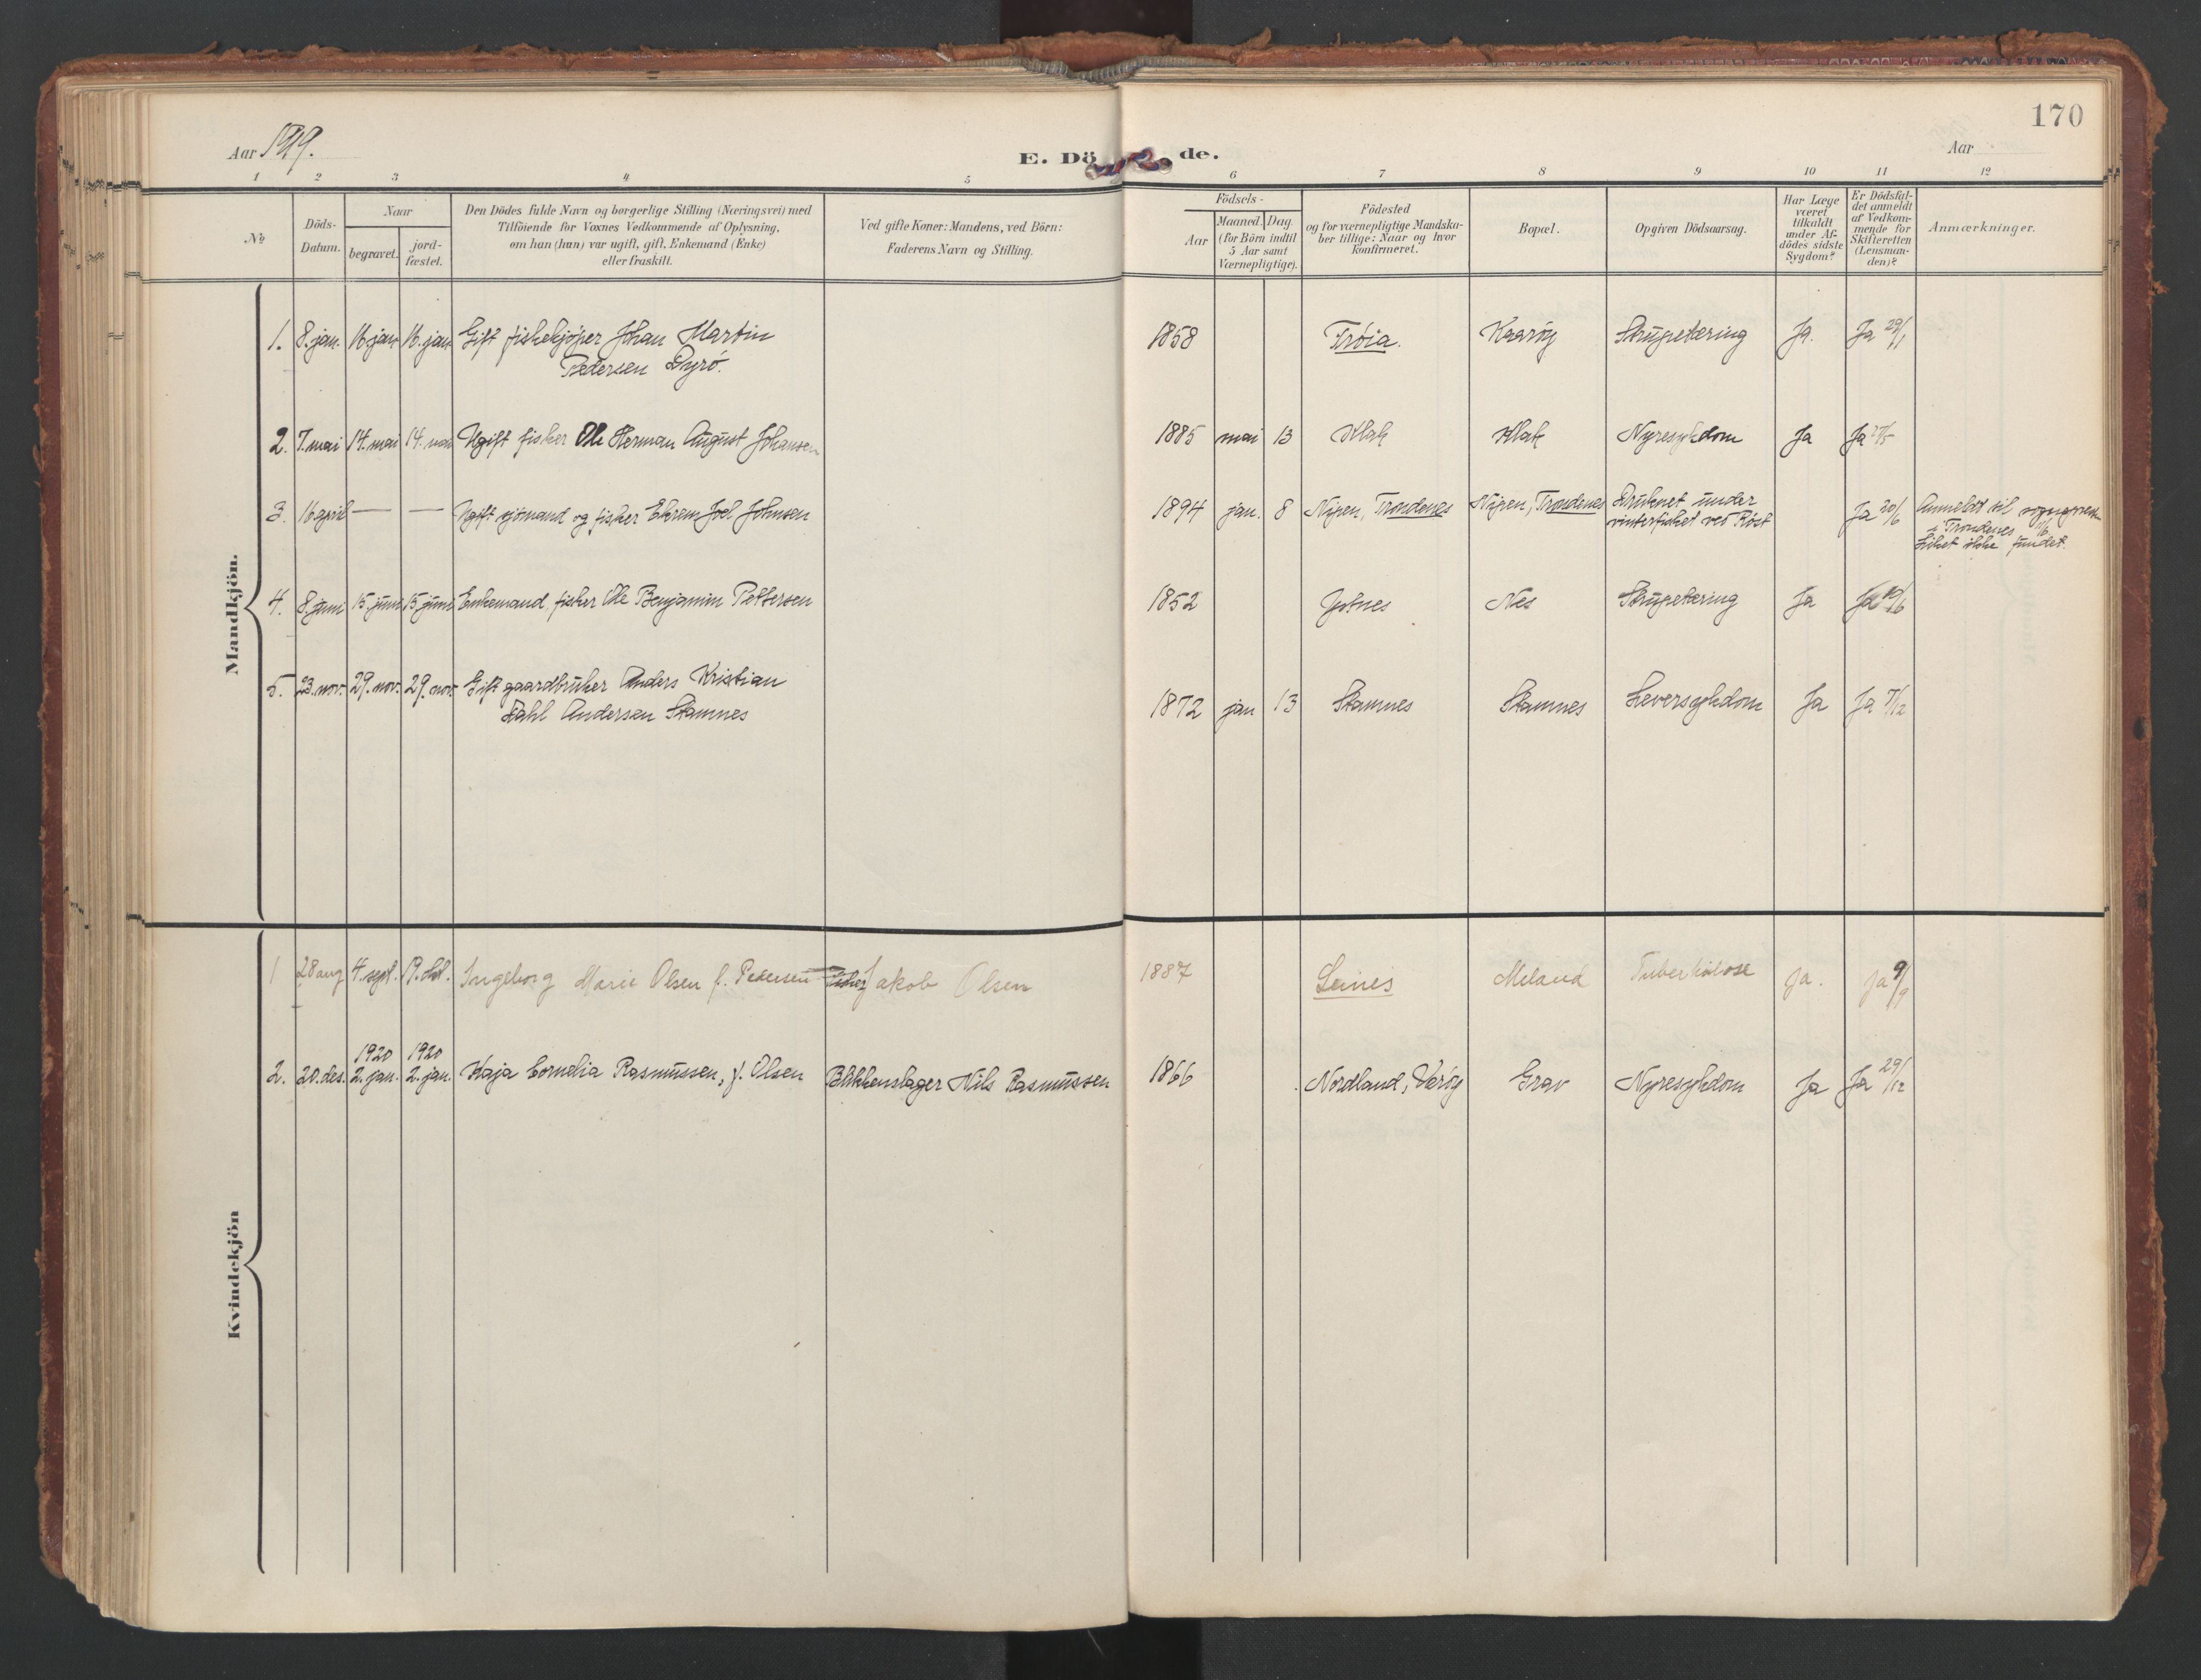 170
Aar 1919.
E. Dö de.
Aar
1 2 3 4 5 6 7 8 9 10 11 12
No
Döds-
Datum.
Naar
begravet.
jord-
fæstet.
Den Dödes fulde Navn og borgerlige Stilling (Næringsvei) med
Tilföiende for Voxnes Vedkommende af Oplysning,
om han (hun) var ugift, gift, Enkemand (Enke)
eller fraskilt.
Ved gifte Koner: Mandens, ved Börn:
Faderens Navn og Stilling.
Födsels-
Aar
Maaned. Dag.
(for Börn indtil
5 Aar samt
Værnepligtige).
Födested
og for værnepligtige Mandska-
ber tillige: Naar og hvor
konfirmeret.
Bopæl.
Opgiven Dödsaarsag.
Har Læge
været
tilkaldt
under Af-
dödes sidste
Sygdom?
Er Dödsfal-
det anmeldt
af Vedkom-
mende for
Skifteretten
(Lensman-
den)?
Anmærkninger.
Mandkjön.
1. 8. jan. 16. jan. 16. jan. Gift fiskekjöper Johan Martin
Pedersen Dyrö.
1858 Tröia. Kaaröy Strupetæring Ja. Ja 29/1
2. 7. mai 14. mai 14. mai Ugift fisker Ole Herman August Johansen
1885 mai 13 Klak Klak Nyresykdom Ja Ja
3. 16 april — — Ugift sjömand og fisker Efraim Joel Johnsen
1894 jan. 8 Nipen, Trondenes Nipen, Trondenes Druknet under
vinterfisket ved Röst
Ja 20/6
Anmeldt til
i Trondenes
Liket ikke fundet.
4. 8. juni 15. juni 15. juni Enkemand, fisker Ole Benjamin Pettersen
1852 Nes Strupetæring Ja Ja
5. 23. nov. 29. nov. 29. nov. Gift gaardbruker Anders Kristian
Dahl Andersen Stamnes
1872 jan 13 Stamnes Stamnes Leversykdom Ja Ja 7/12
Kvindekjön
1 28 aug 4. sept. 19. okt. Ingeborg Marie Olsen f. Pedersen Jakob Olsen
1887 Leines Meland Tuberkulose Ja. Ja 9/9
1920 1920
2. 20. des. 2. jan. 2. jan. Kaja Cornelia Rasmussen, f. Olsen Blikkenslager Nils Rasmussen
1866 Nordland, Veröy Grav Nyresykdom Ja Ja 29/12